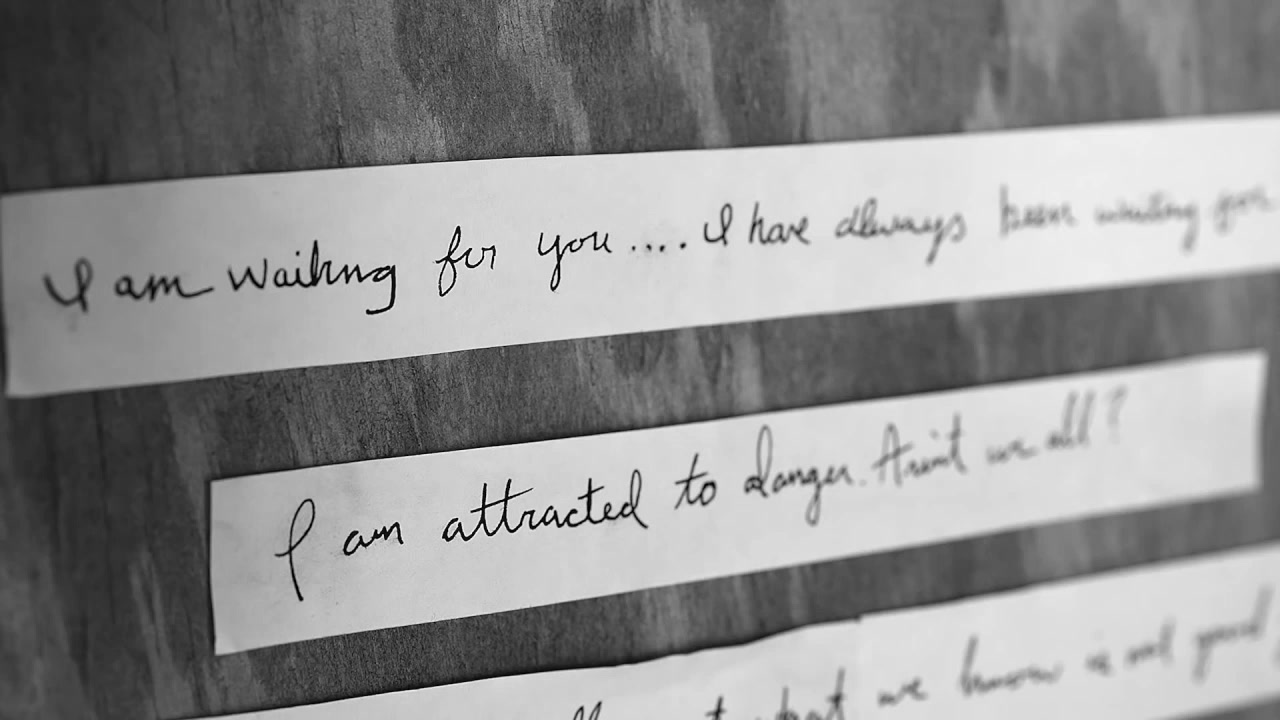 I am waiting for you.... I have always been waiting for
I am attracted to danger. Aren't we all?
what we know is not good